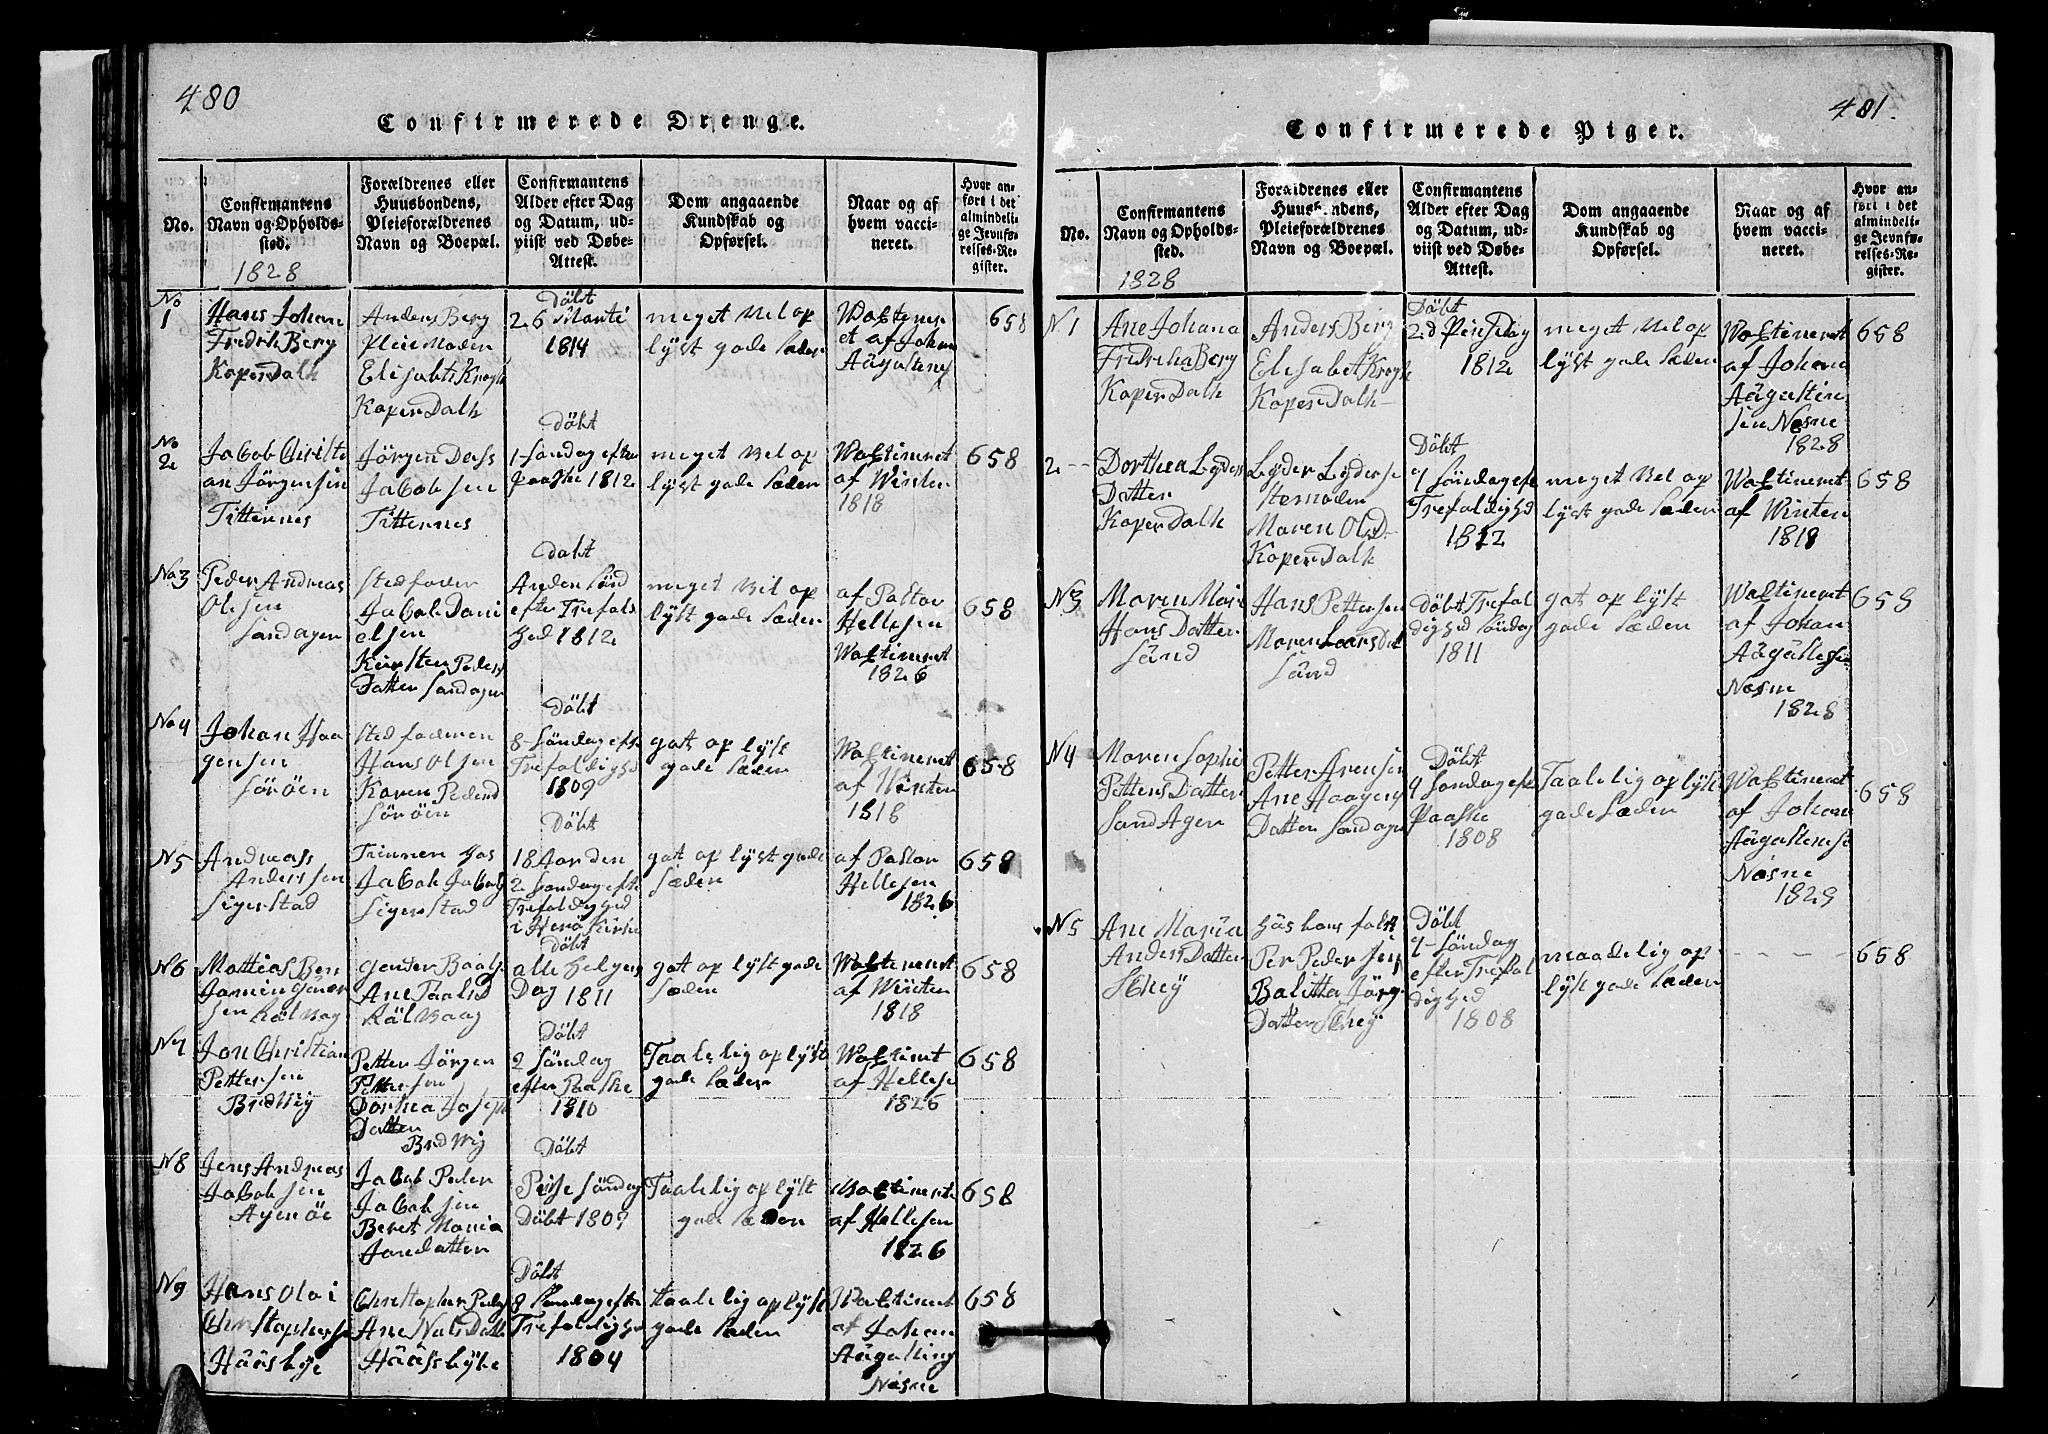 480
Confirmerede Drenge.
No.
Confirmantens
Navn og Opholds-
sted.
1828
Forældrenes eller
Huusbondens,
Pleieforældrenes
Navn og Boepæl.
Confirmantens
Alder efter Dag
og Datum, ud-
viist ved Døbe-
Attest.
Dom angaaende
Kundskab og
Opførsel.
Naar og af
hvem vacci-
neret.
Hvor an-
ført i det
almindeli-
ge Jevnfø-
relses-Re-
gister.
No
1
Hans Johan
Fredrik Berg
Koperdalh
Anders Berg
Pleie Moder
Elisabet Krogh
Koperdalh
Döbt
26 Marti
1814
meget Vel op
lyst gode Sæder
Waktiner
et af Johan
658
No
2
Jacob Christi
an Jörgensen
Titternes
Jacobsen
Titternes
Döbt
1-Söndag efter
Paaske 1812
meget Vel op
lyst gode Sæder
Waktineret
af Winter
1818
658
No 3
Peder Andreas
Olesen
Sandagen
Stedfader
Jacob Dani
elsen
Kirsten Peders
Datter Sandagen
Anden Sönd
efter Trefol
hed 1812
meget Vel op
lyst gode Sæder
af Pastor
Hellesen
Waktineret
1826
658
No 4
Johan Haa
gensen
Söröen
Stedfaderen
Hans Olsen
Karen Pederd
Söröen
Döbt
8-Söndag efte
Trefoldighed
1809
got op lyst
gode Sæder
Waktineret
af Winter
1818
658
N 5
Andreas
Anderssen
Sigerstad
Tienner hos
Jacob Jacobs
Sigerstad
Döbt
18 Aar den
2 Söndag efte
Trefoldighed
i Herö Kirke
got op lyst gode
Sæder
af Pastor
Hellesen
1826
658
N 6
Mattias Ben
jamin Gunder
sen
Ane Paalsd
Döbt
alle Helgens
Dag 1811
got op lyst gode
Sæder
Waktineret
af Winter
1818
658
N 7
Jon Christian
Pettersen
Bredwig
Petter Jörgen
Pettersen
Dorthea Joseph
Datter
Bredwig
Döbt
2 Söndag
efter Paaske
1810
Taalelig op lyst
gode Sæder
Waktinret
af Hellese
1826
658
N 8
Jens Andreas
Jacobsen
Jacob Peder
Jacobsen
Beret Maria
Jansdatter
Döbt
Söndag
Döbt 1809
Taalelig op lyst
gode Sæder
Waktineret
af Hellesen
1826
658
N 9
Hans Olai
Christophersen
Christopher Peder
Ane Nils Datte
Döbt
8 Söndag efte
Trefoldighe
1804
taalelig op lyst
gode Sæder
Waktineret
af Johan
Nesne
658
481.
Confirmerede Piger.
No.
Confirmantens
Navn og Opholds-
sted.
1828
Forældrenes eller
Huusbondens,
Pleieforældrenes
Navn og Boepæl.
Confirmantens
Alder efter Dag
og Datum, ud-
viist ved Døbe-
Attest.
Dom angaaende
Kundskab og
Opførsel.
Naar og af
hvem vacci-
neret.
Hvor an-
ført i det
almindeli-
ge Jevnfø-
relses-Re-
gister.
N 1
Ane Johana
Fredricha Berg
Koperdalh
Anders Berg
Elisabet Krogh
Koperdalh
Döbt
2d Pinsedag
1812
meget Vel op
lyst gode Sæder
Waktineret
af Johan
Aügustin
sen Nesne
1828
658
2 --
Dorthea Lyders
Datter
Koperdalh
Lyder Lyderse
Stemoder
Maren Olsd
Koperdalh
Döbt
9 Söndag efe
Trefoldighd
1812
meget Vel op
lyst gode Sæder
Waktineret
af Winter
1818
658
No 3
Maren Mari
Hans Datter
Sünd
Hans Pettersen
Maren Larsdat
Sünd
Döbt Trefol
dighed Söndag
1811
got op lyst
gode Sæder
Waktineret
af Johan
Nesne
1828
658
N 4
Maren Sophi
Petters Datter
Sandagen
Petter Arensen
Ane Haagens
Datter Sandagen
Döbt
9 Söndag efe
Paaske
1808
Taalelig op lyst
gode Sæder
Waktineret
af Johan
Aügustense
Nesne
1828
658
N 5
Ane Maria
Anders Datter
Per Pedersen
Datter
Döbt
9-Söndag
efter Trefol
dighed
1808
maadelig op
lyst gode Sæder
- - - -
658